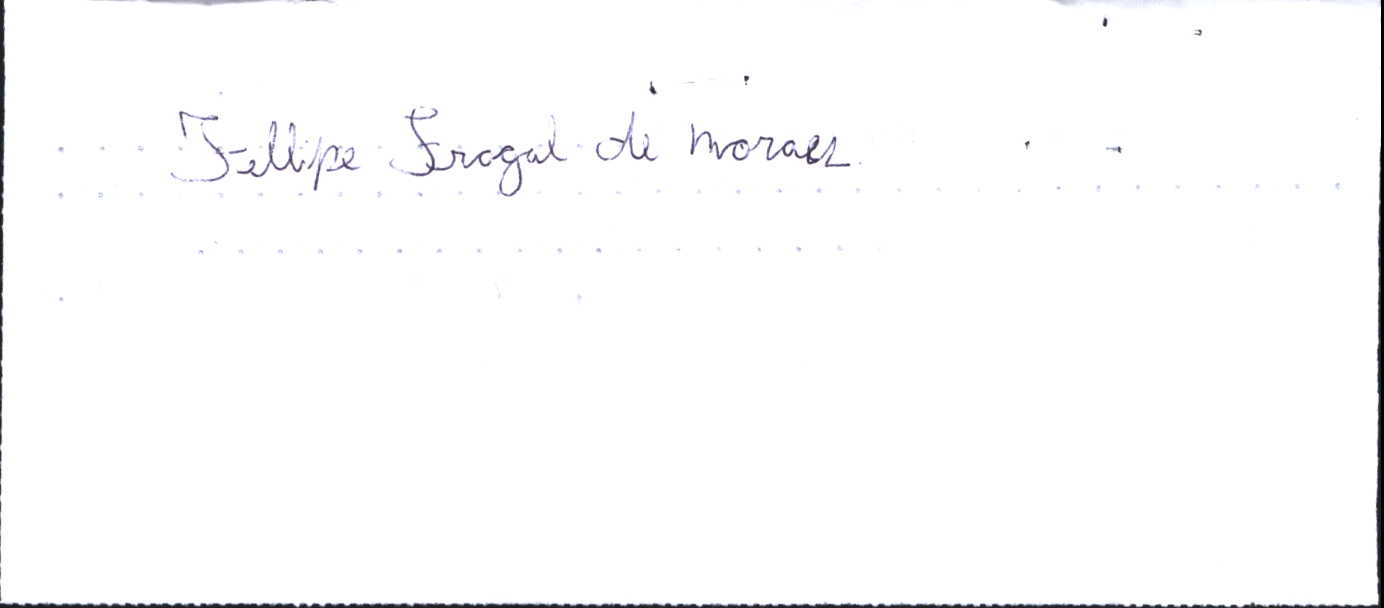 Fellipe Fragal de Moraes